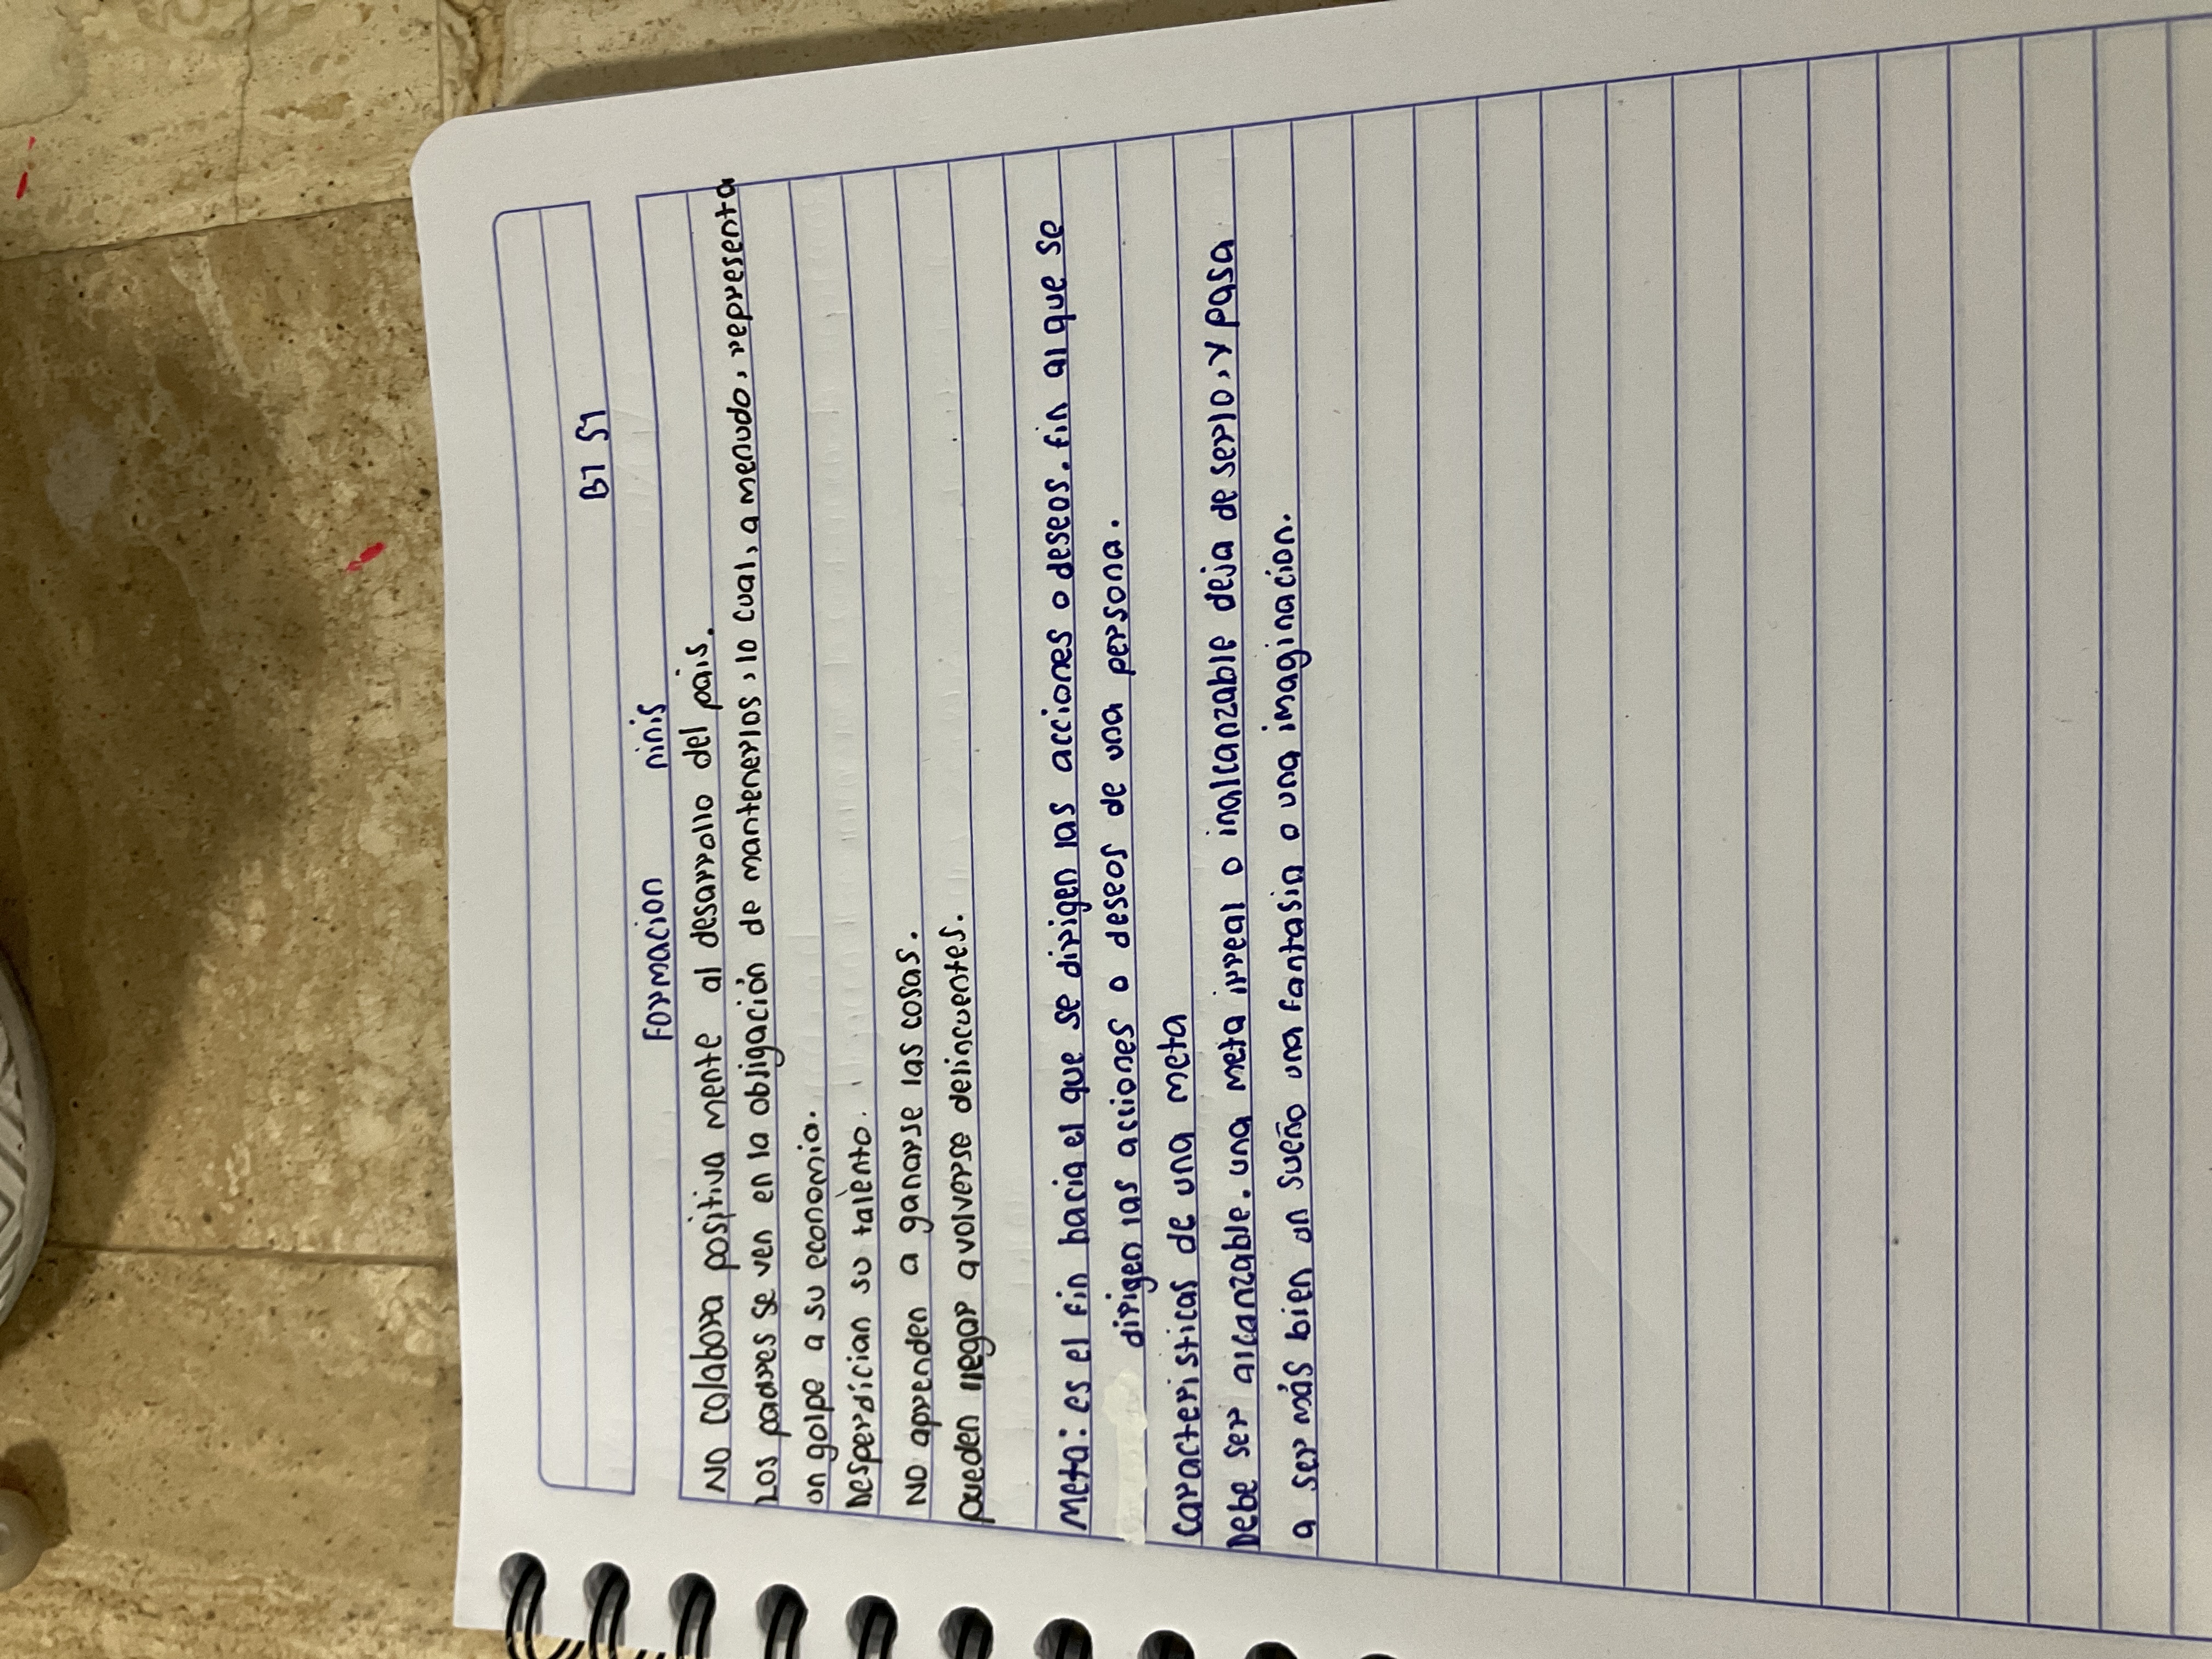 B1 S1
Formacion ninis
No colabora positiva mente al desarrollo del pais.
Los padres se ven en la obligación de mantenerlos, lo cual, a menudo, representa
un golpe a su economia.
Desperdician su talento.
No aprenden a ganarse las cosas.
pueden llegar a volverse delincuentes.
Meta: es el fin hacia el que se dirigen las acciones o deseos. fin al que se
dirigen las acciones o deseos de una persona.
Caracteristicas de una meta
Debe ser alcanzable. una meta irreal o inalcanzable deja de serlo, y pasa
a ser más bien un sueño una fantasia o una imaginacion.